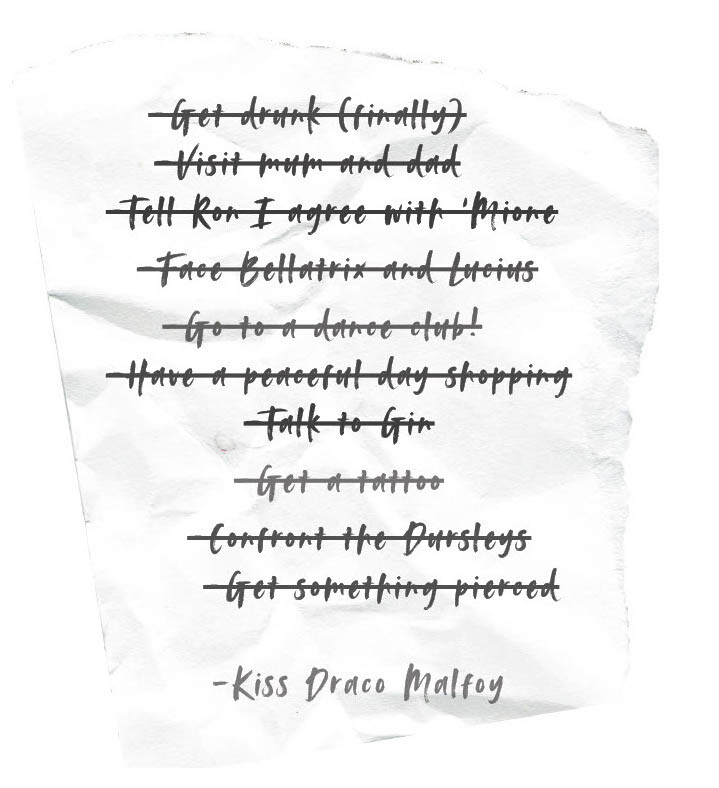 -Get drunk (finally)
-Visit mum and dad
-Tell Ron I agree with 'Mione
-Face Bellatrix and Lucius
-Go to a dance club!
-Have a peaceful day shopping
-Talk to Gin
-Get a tattoo
-Confront the Dursleys
-Get something pierced
-Kiss Draco Malfoy